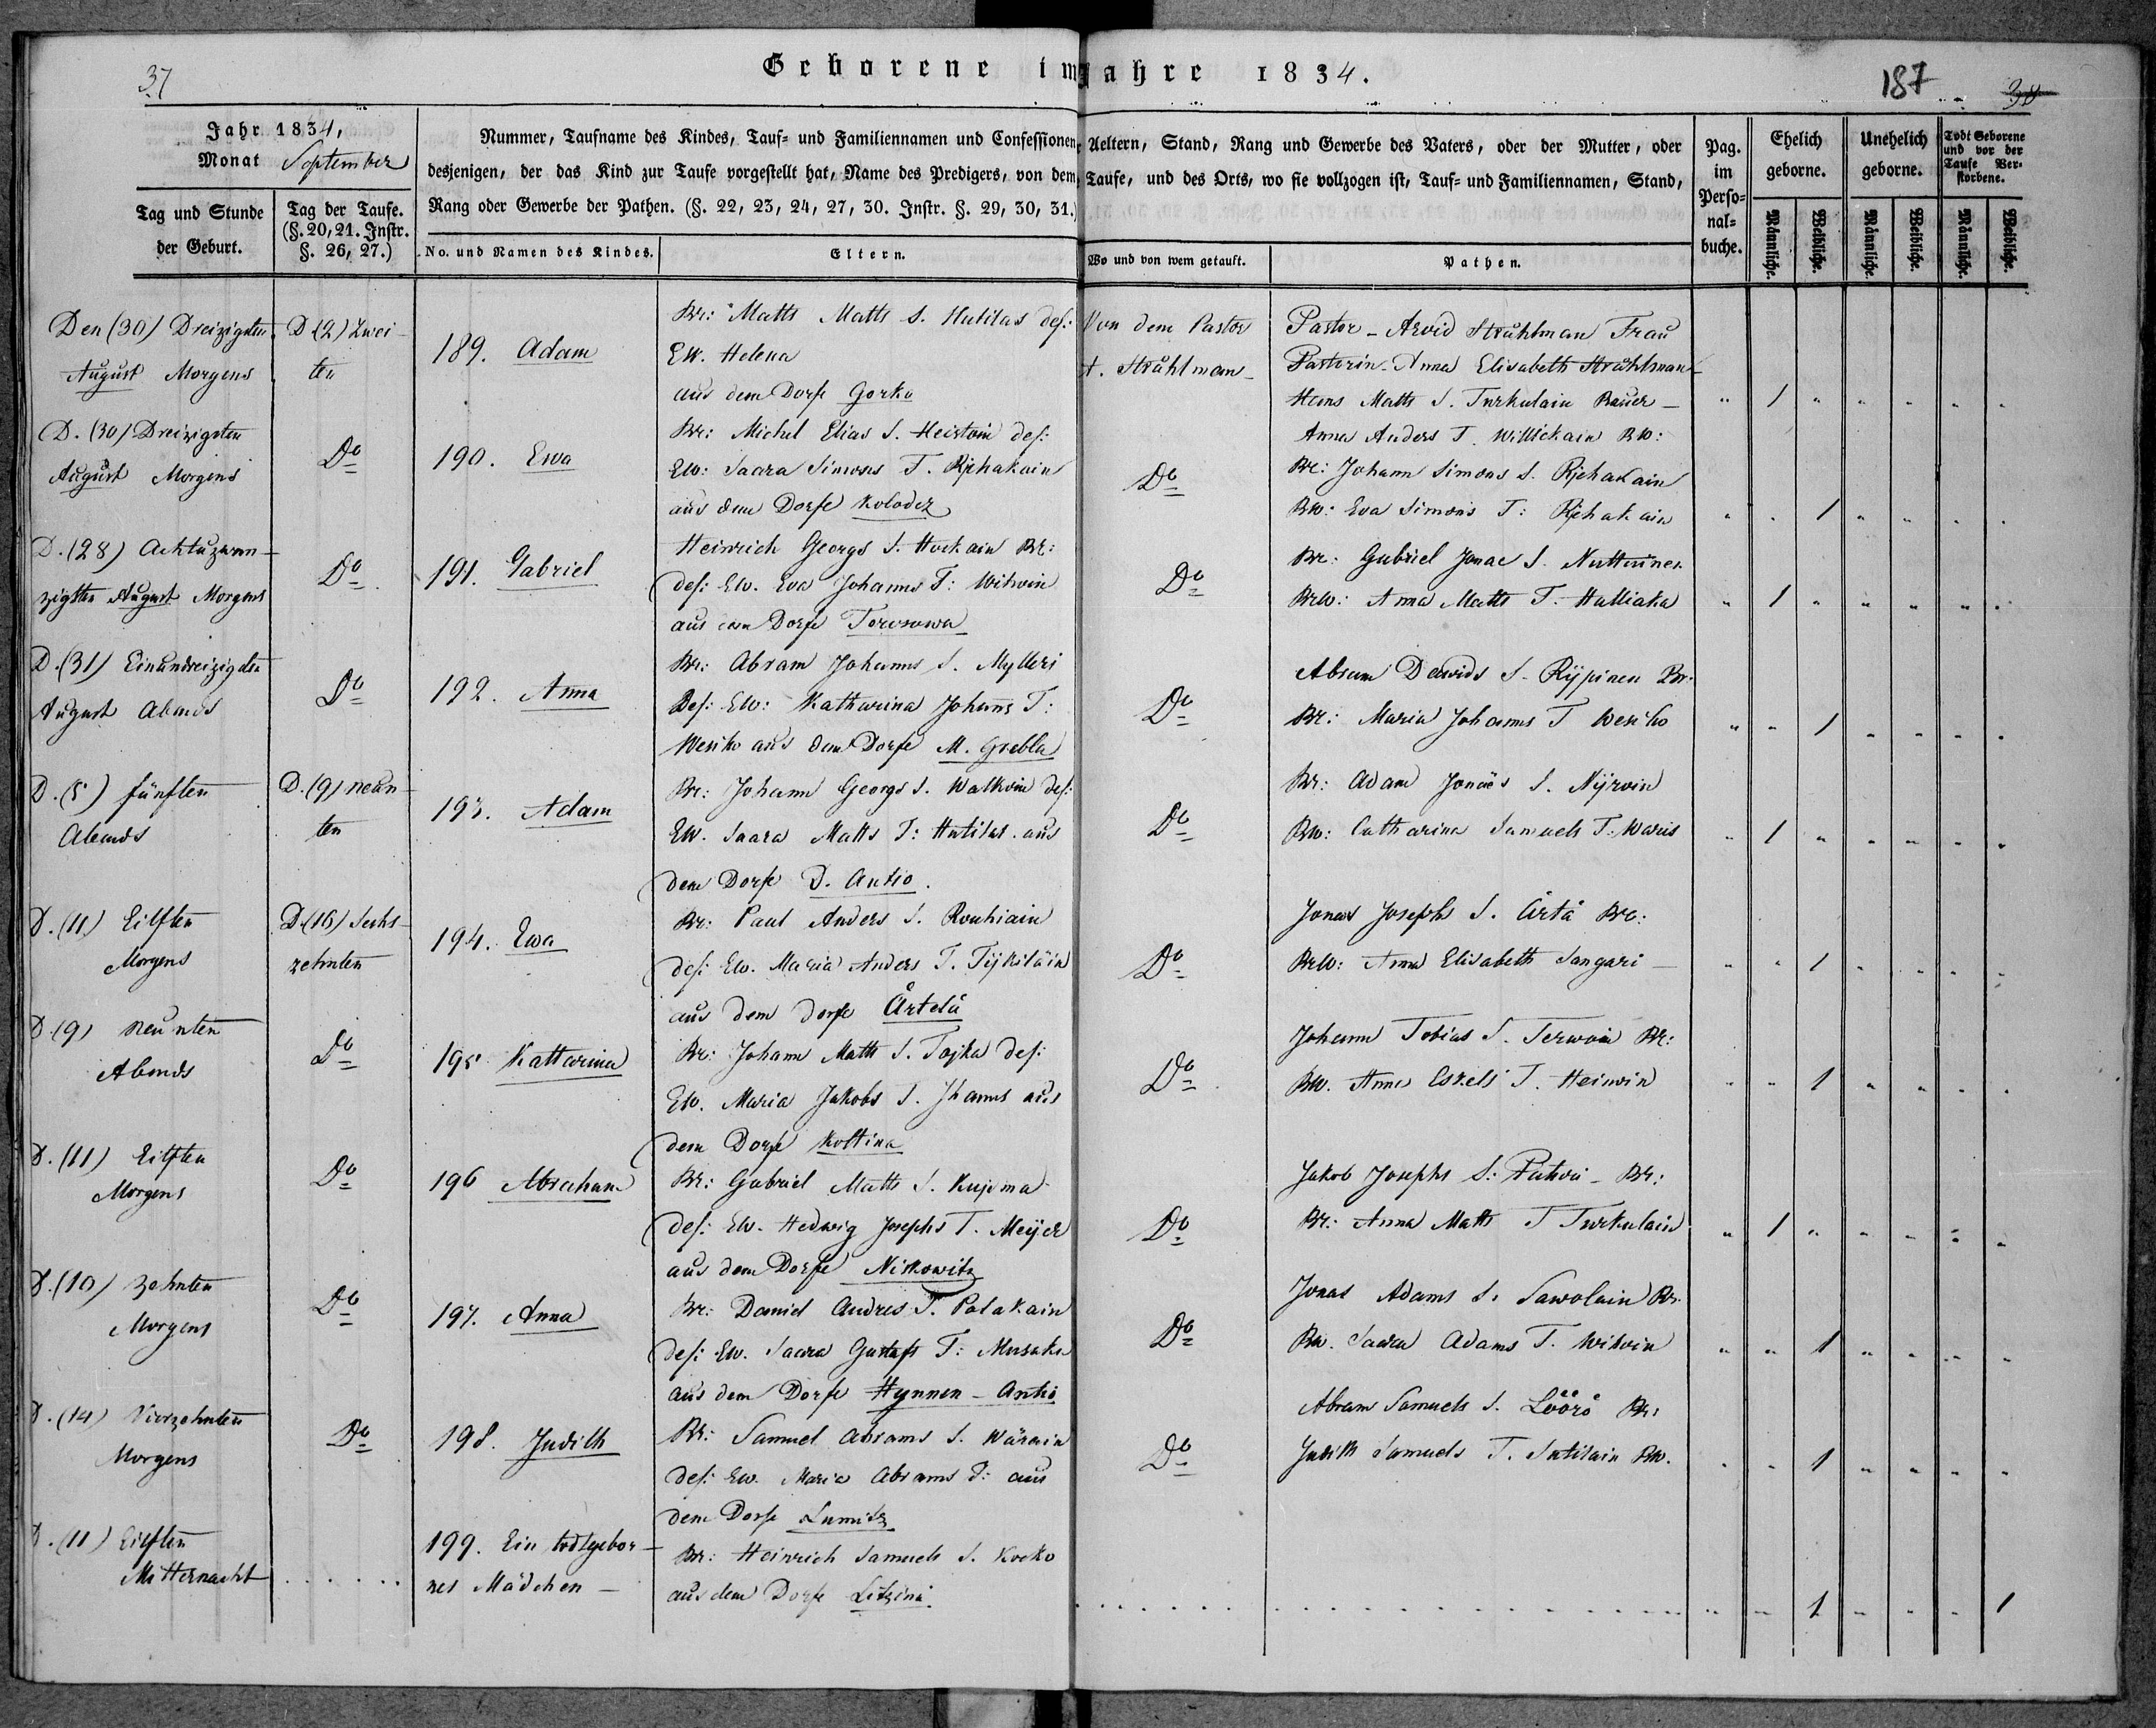 37
Geborene im Jahre 1834.
187
38
Jahr 1834,
Monat September
Nummer, Taufname des Kindes, Tauf- und Familiennamen und Confessionen Aeltern, Stand, Rang und Gewerbe des Vaters, oder der Mutter, oder
desjenigen, der das Kind zur Taufe vorgestellt hat, Name des Predigers, von dem Taufe, und des Orts, wo sie vollzogen ist, Tauf- und Familiennamen, Stand,
Rang oder Gewerbe der Pathen. (§. 22, 23, 24, 27, 30. Instr. §. 29, 30, 31.)
Pag.
im
Perso-
nal-
buche.
Ehelich
geborne.
Unehelich
geborne.
Todt Geborene
und vor der
Taufe Ver-
storbene.
Tag und Stunde
der Geburt.
Tag der Taufe.
(§. 20, 21. Instr.
§. 26, 27.)
No. und Namen des Kindes.
Eltern.
Wo und von wem getauft.
Pathen.
Männliche.
Weibliche.
Männliche.
Weibliche.
Männliche.
Weibliche.
Den (30) Dreizigsten
August Morgens
D (2) Zwei-
ten
189. Adam
Br: Matts Matts S. Hutilas des:
EW. Helena
aus dem Dorfe Gorka
Von dem Pastor
A. Stråhlman
Pastor - Arvid Stråhlman Frau
Pastorin - Anna Elisabeth Stråhlman
Hans Matts S. Turkulain Bauer -
Anna Anders T. Willickain BW:
" 1 " " " " "
D. (30) Dreizigsten
August Morgens
Do
190. Ewa
Br: Michel Elias S. Heistoin des:
EW: Saara Simons T. Rjehakain
aus dem Dorfe Kolodez
Do
Br: Johann Simons S. Rjehakain
BW: Eva Simons T: Rjehakain
" " 1 " " " "
D. (28) Achtuzwan-
zigsten August Morgens
Do
191. Gabriel
Heinrich Georgs S. Hockain Br:
des: EW. Eva Johanns T: Witwin
aus dem Dorfe Torosowa
Do
Br: Gabriel Jonae S. Nuttunen
BrW: Anna Matts T. Halliaka
" 1 " " " " "
D. (31) Einundreizigsten
August Abends
Do
192. Anna
Br: Abram Johanns S. Mylleri
Des: EW: Katharina Johanns T:
Wesiko aus dem Dorfe M. Grebla
Do
Abram Dawids S. Ryjpinen Br.
Br: Maria Johanns T Wesiko
" " 1 " " " "
D. (5) fünften
Abends
D. (9) neun-
ten
193. Adam
Br: Johann Georgs S. Walkoin des:
EW. Saara Matts T: Hutilas aus
dem Dorfe D. Antio.
Do
Br: Adam Jonaës S. Nyrwin
BW: Catharina Samuels T. Waris
" 1 " " " " "
D. (11) Eilften
Morgens
D (16) Sechs-
zehnten
194. Ewa
Br: Paul Anders S. Rouhiain
des: EW. Maria Anders T. Tijkiläin
aus dem Dorfe Årtelå
Do
Jonas Josephs S. Årtå Br:
BrW: Anna Elisabeth Sangari -
" " 1 " " " "
D (9) Neunten
Abends
Do
195 Katharina
Br: Johann Matts S. Tojka des:
EW. Maria Jakobs S. Jhanus aus
dem Dorfe Koltina
Do
Johann Tobias S. Terwoin Br:
BW. Anna Eskels T. Heinoin
" " 1 " " " "
D. (11) Eilften
Morgens
Do
196 Abraham
Br: Gabriel Matts S. Kujoma
des: EW. Hedwig Josephs T. Meijer
aus dem Dorfe Niskowitz
Do
Jakob Josephs S: - Br:
Br: Anna Matts T Turkulain
" 1 " " " " "
D. (10) Zehnten
Morgens
Do
197. Anna
Br: Daniel Andres S. Polakain
des: EW. Saara Gustafs T: Musaka
aus dem Dorfe Hynnen - Antio
Do
Jonas Adams S. Sawolain Br.
BW. Saara Adams T. Witwin
" " 1 " " " "
D. (14) Vierzehnten
Morgens
Do
198. Judith
Br: Samuel Abrams S. Wärain
des: EW. Maria Abrams T: aus
dem Dorfe Lumitz
Do
Abram Samuels S. Löörö Br:
Judith Samuels T. Sutilain BW.
" " 1 " " " "
D. (11) Eilften
Mitternacht
199. Ein todtgebor-
nes Mädchen -
Br: Heinrich Samuels S. Kocko
aus dem Dorfe Letzina.
" " 1 " " " 1